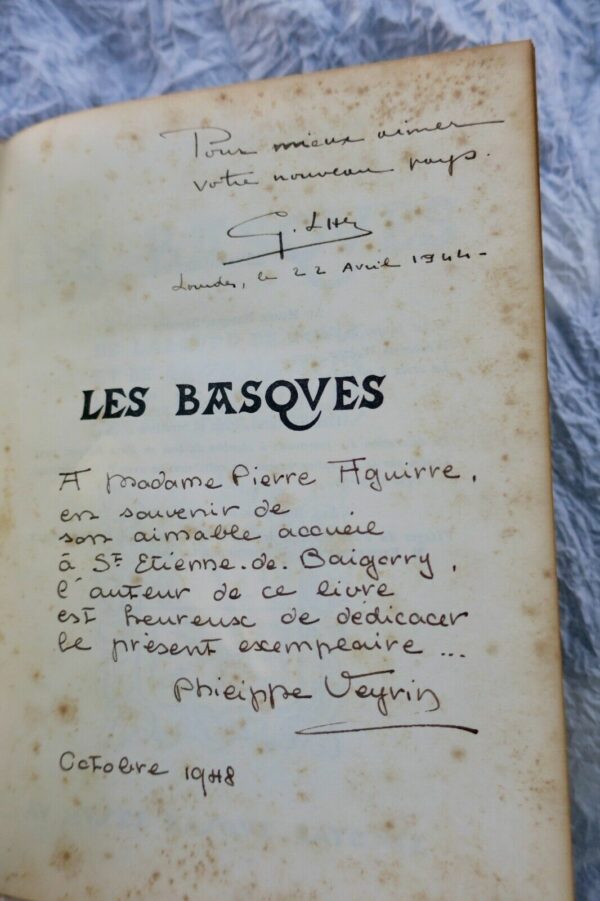 Pour mieux aimer
votre nouveau pays.
G.
Lourdes, le 22 Avril 1944-
LES BASQVES
A Madame Pierre Aguirre,
en souvenir de
son aimable accueil
à St Etienne-de-Baigorry,
l'auteur de ce livre
est heureux de dédicacer
le présent exemplaire ...
Philippe Veyrin
Octobre 1948